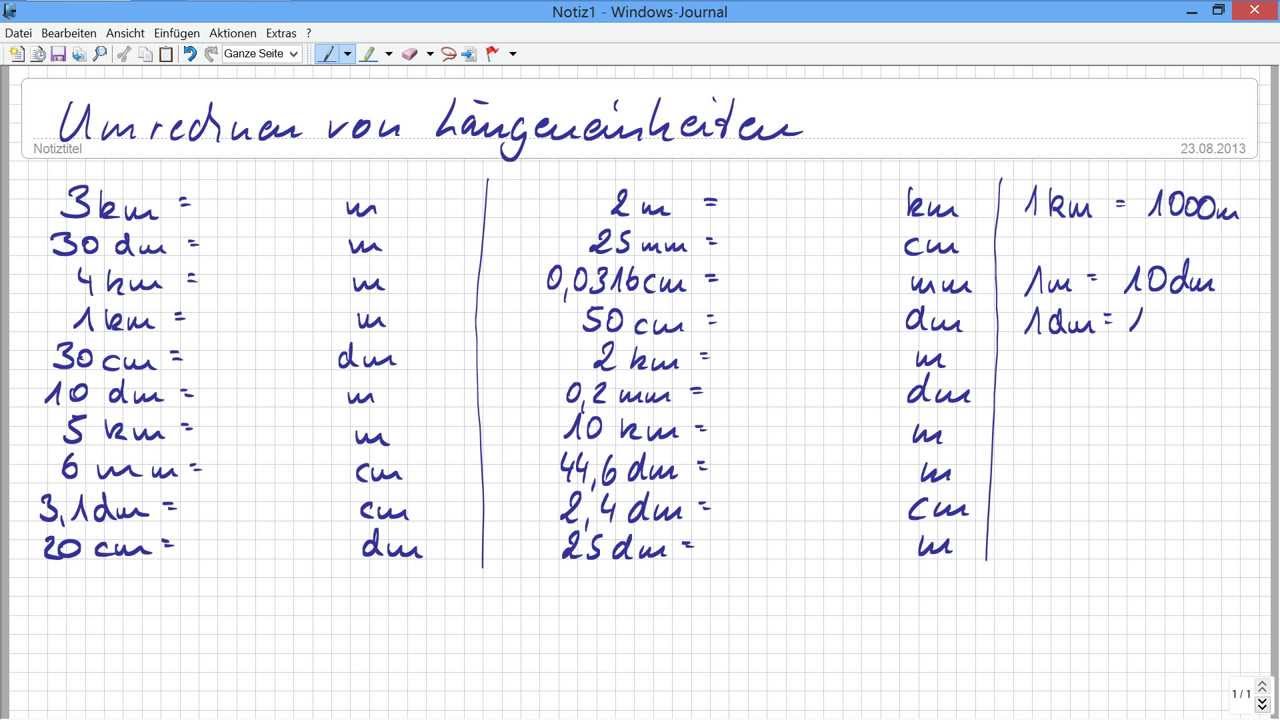 Notiz1 - Windows-Journal
Datei Bearbeiten Ansicht Einfügen Aktionen Extras ?
Ganze Seite
Umrechnen von Längeneinheiten
Notiztitel
23.08.2013
3 km = m
30 dm = m
4 km = m
1 km = m
30 cm = dm
10 dm = m
5 km = m
6 mm = cm
3,1 dm = cm
20 cm = dm
2 m = km
25 mm = cm
0,0316 cm = mm
50 cm = dm
2 km = m
0,2 mm = dm
10 km = m
44,6 dm = m
2,4 dm = cm
25 dm = m
1 km = 1000m
1m = 10dm
1dm =
1 / 1